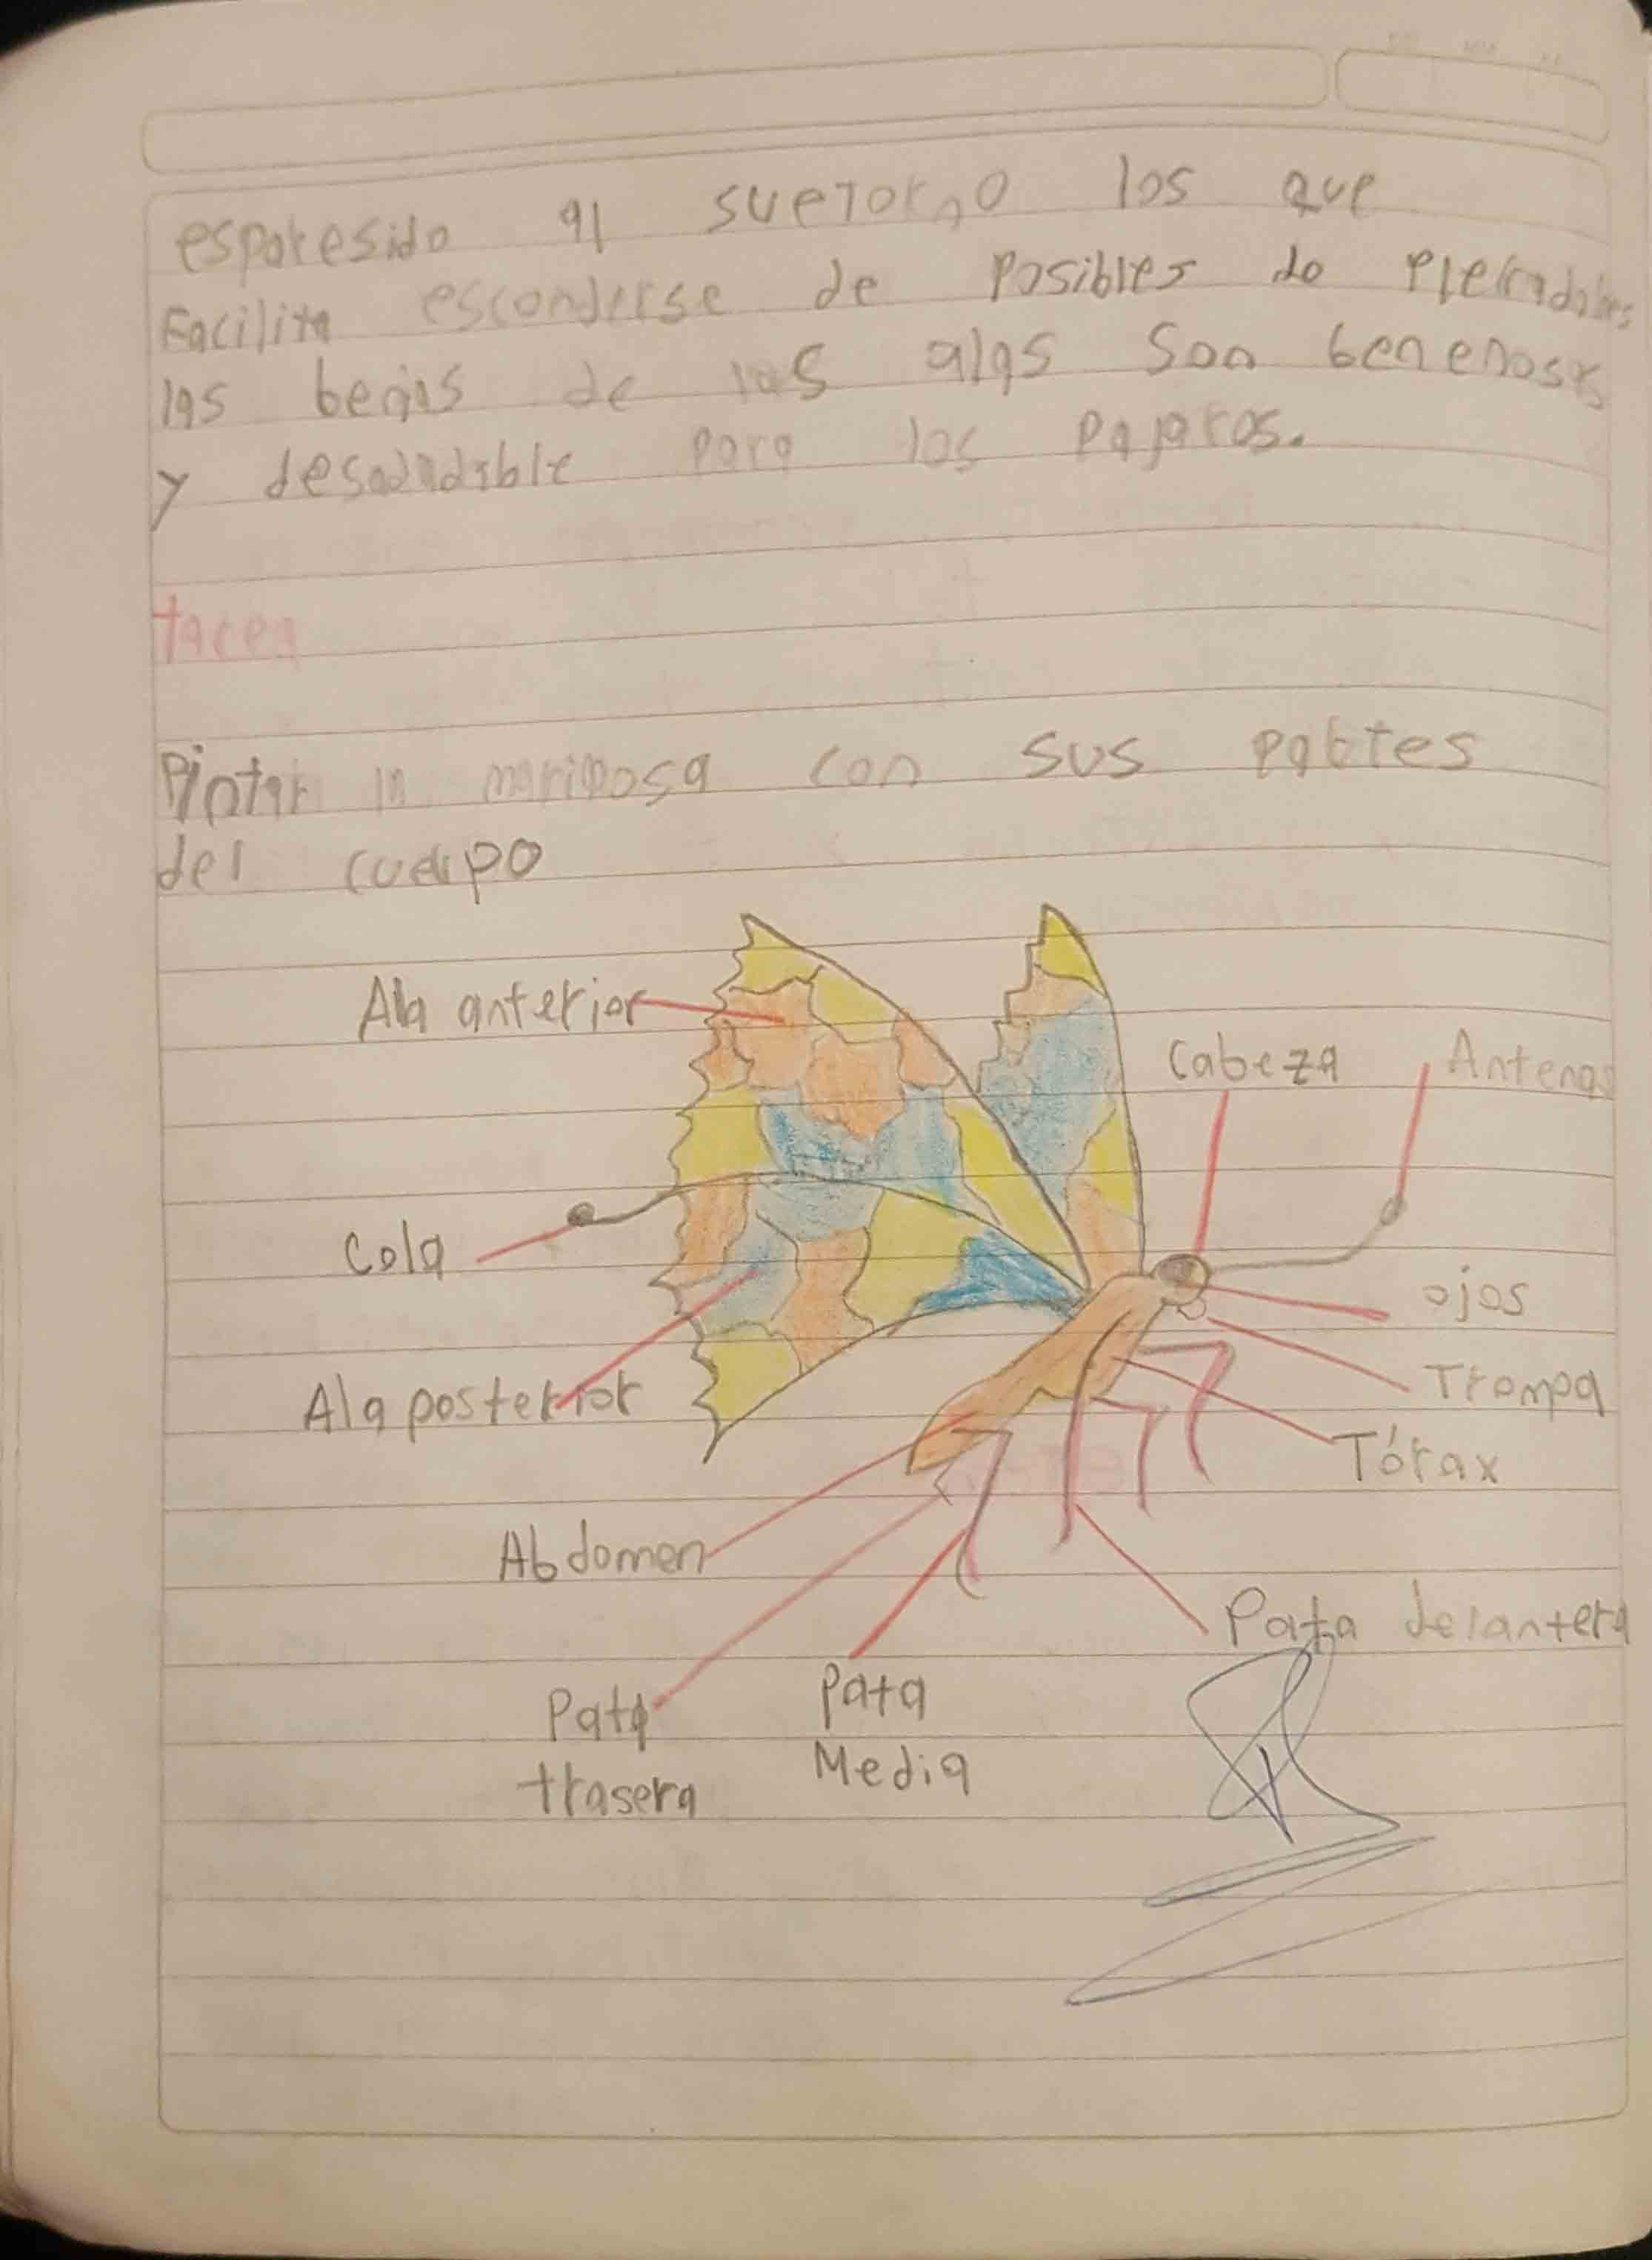 esparesido al suetorno los que
Facilita esconderse de posibles de
las benas de las alas son benenosas
y para los pajaros.
tarea
Pintar la mariposa con sus pabtes
del cuerpo
Ala anterior
Cabeza
Antenas
Cola
ojos
Ala posterior
Trompa
Tórax
Abdomen
Pata delantera
Pata
trasera
pata
Media